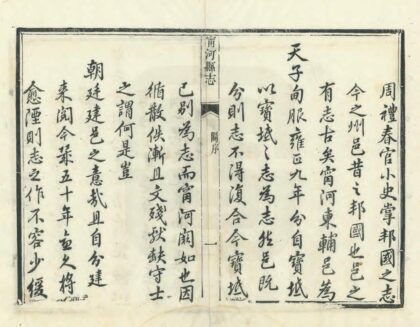 周禮春官小史掌邦國之志
今之州邑昔之邦國也邑之
有志古矣甯河東輔邑為
天子甸服雍正九年分自寶坻
以寶坻之志為志然邑既
分則志不得復合今寶坻
甯河縣志
關序
一
已別為志而甯河闕如也因
循散佚漸且文殘獻缺守土
之謂何是豈
朝廷建邑之意哉且自分建
來閱今幾五十年益久將
愈湮則志之作不容少緩